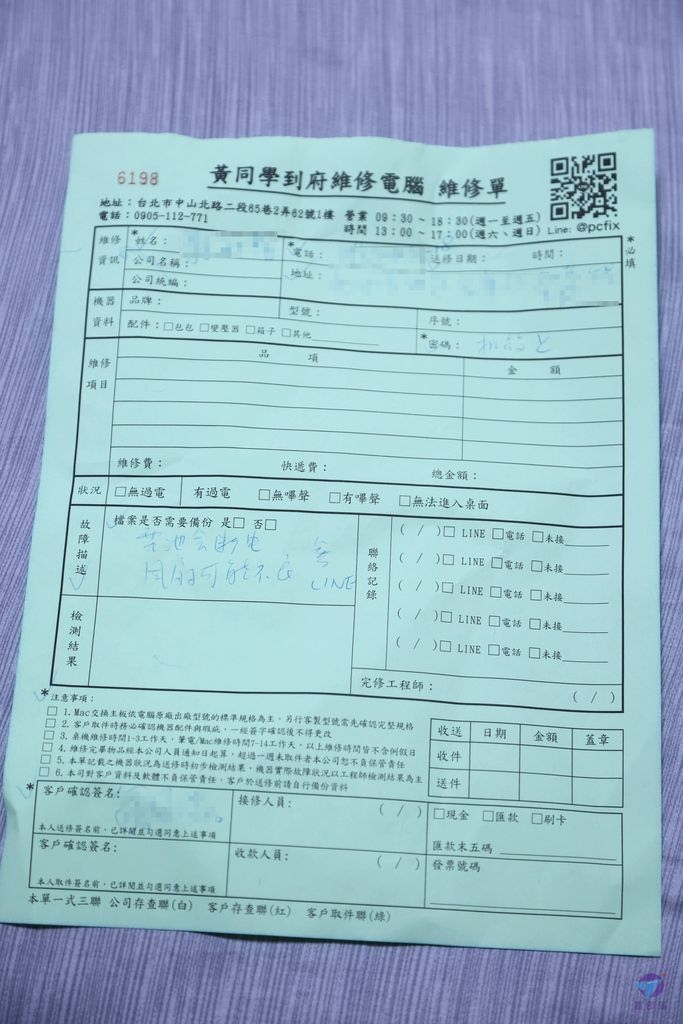 6198
黃同學到府維修電腦 維修單
地址：台北市中山北路二段65巷2弄62號1樓 營業 09：30 ~ 18：30(週一至週五)
電話：0905-112-771 時間 13：00 ~ 17：00(週六、週日) Line: @pcfix
*必填
維修資訊 *姓名： *電話： 送修日期： 時間：
公司名稱： 地址：
公司統編：
機器資料 品牌： 型號： 序號：
配件：□包包 □變壓器 □箱子 □其他 *密碼：
維修項目 品 項 金 額
維修費： 快遞費： 總金額：
狀況 □無過電 有過電 □無嗶聲 □有嗶聲 □無法進入桌面
故障描述 檔案是否需要備份 是□ 否□
電池會斷電
風扇可能不良
LINE
聯絡記錄
( / )□ LINE □電話 □未接
( / )□ LINE □電話 □未接
( / )□ LINE □電話 □未接
( / )□ LINE □電話 □未接
( / )□ LINE □電話 □未接
檢測結果
完修工程師： ( / )
*注意事項：
□ 1.Mac交換主板依電腦原廠出廠型號的標準規格為主，另行客製型號需先確認完整規格
□ 2.客戶取件時務必確認機器配件與瑕疵，一經簽字確認後不得更改
□ 3.桌機維修時間1-3工作天，筆電/Mac維修時間7-14工作天，以上維修時間皆不含例假日
□ 4.維修完畢物品經本公司人員通知日起算，超過一週未取件者本公司恕不負保管責任
□ 5.本單記載之機器狀況為送修時初步檢測結果，機器實際故障狀況以工程師檢測結果為主
□ 6.本司對客戶資料及軟體不負保管責任，客戶於送修前請自行備份資料
收送 日期 金額 蓋章
收件
送件
*客戶確認簽名： 接修人員： ( / )
本人送修簽名前，已詳閱並勾選同意上述事項
□現金 □匯款 □刷卡
匯款末五碼
客戶確認簽名： 收款人員： ( / )
發票號碼
本人取件簽名前，已詳閱並勾選同意上述事項
本單一式三聯 公司存查聯(白) 客戶存查聯(紅) 客戶取件聯(綠)